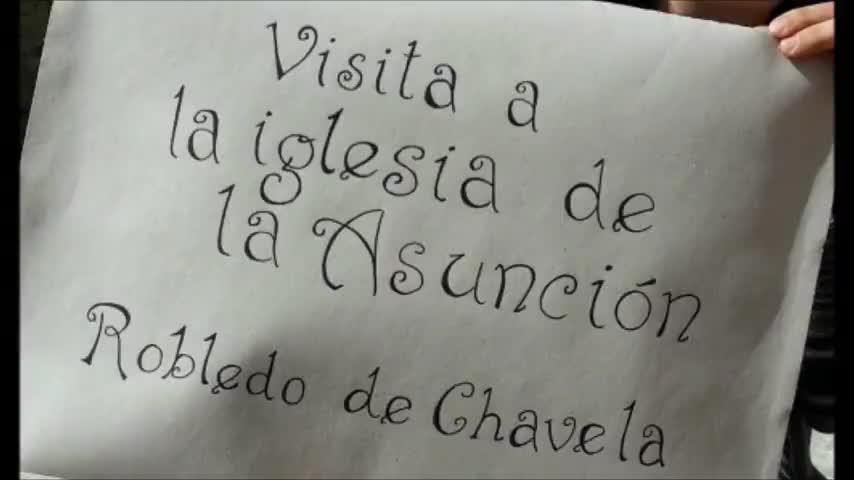 Visita a
la iglesia de
la Asunción
Robledo de Chavela